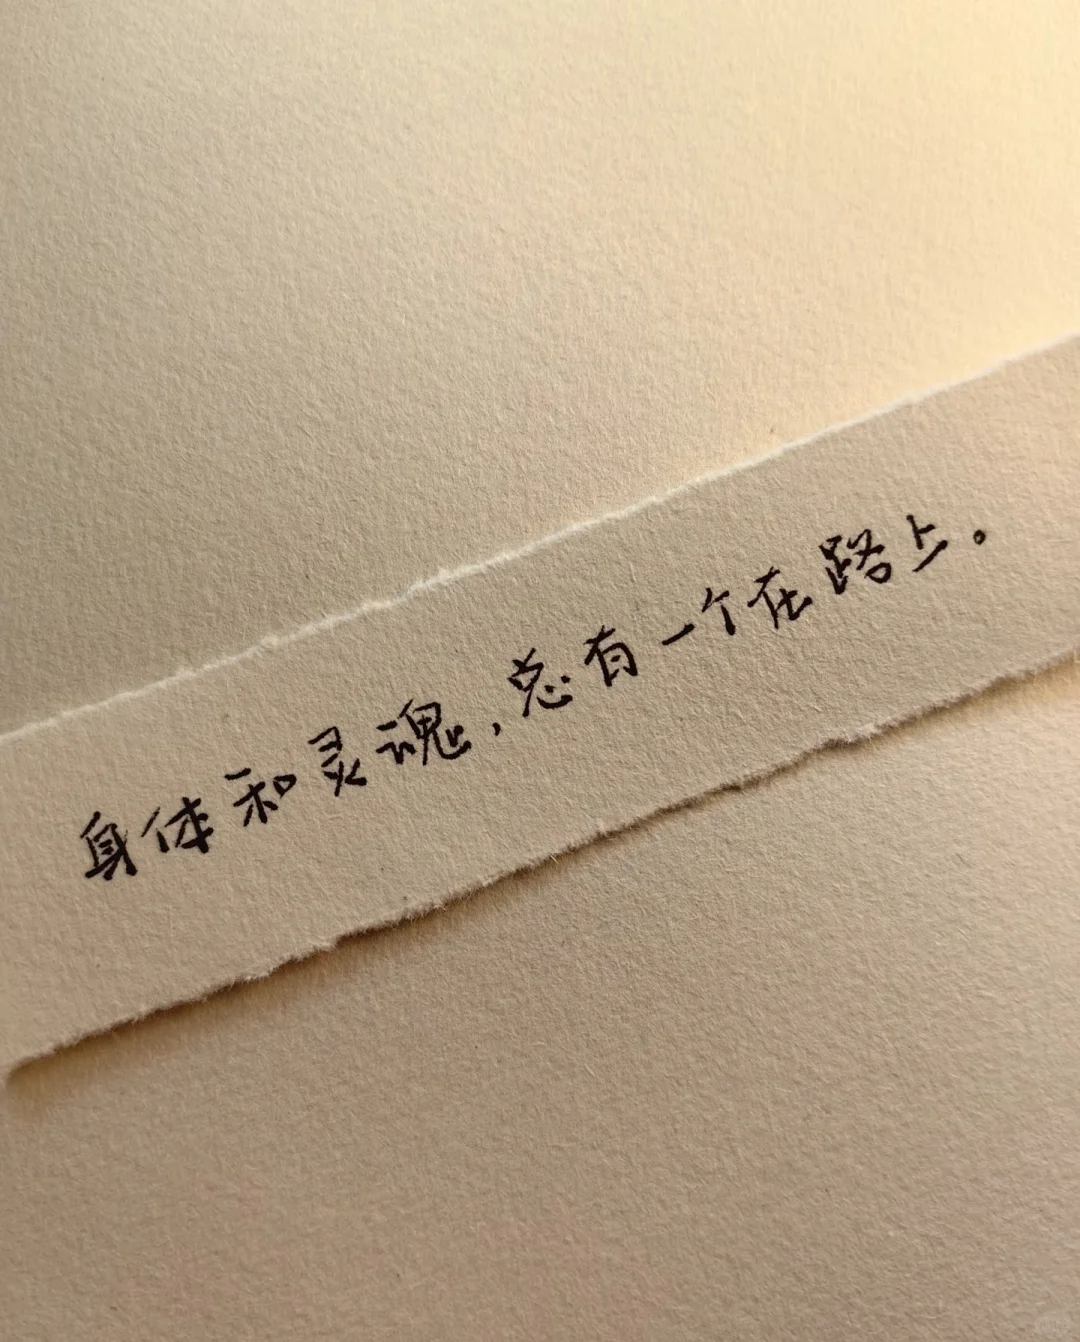 身体和灵魂，总有一个在路上。